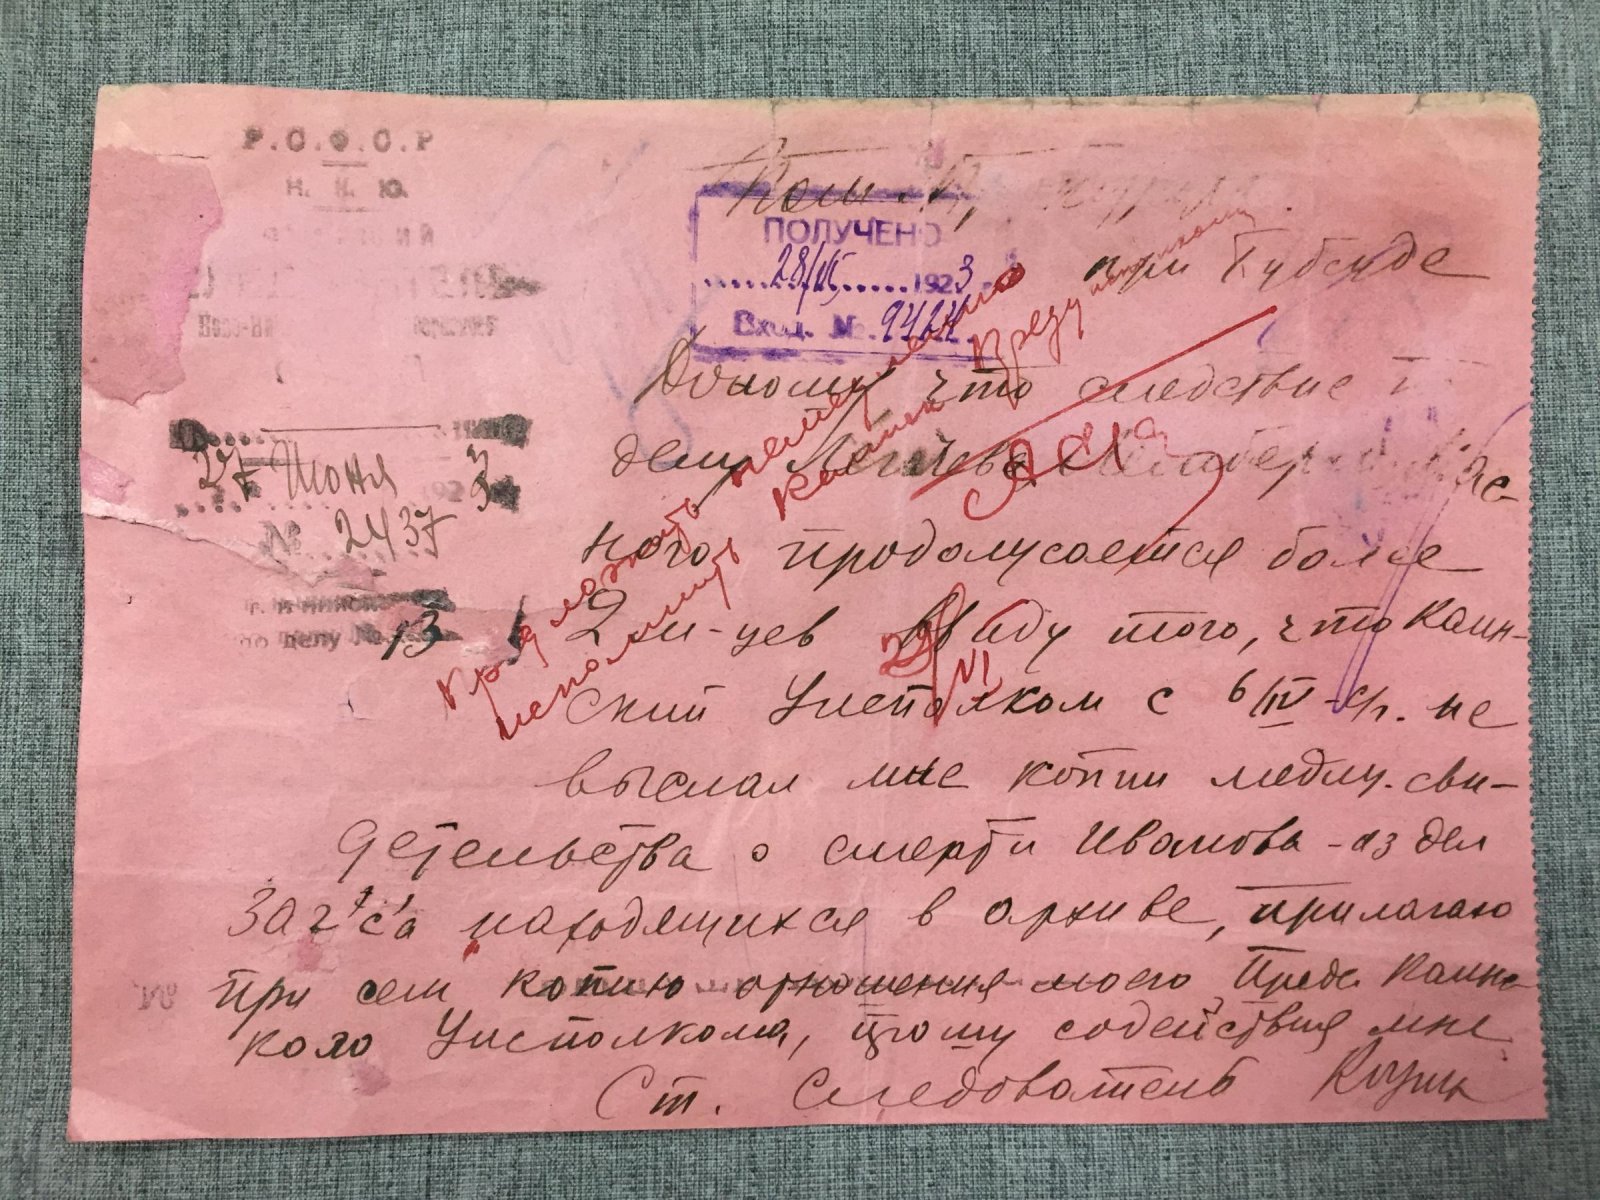 Р.С.Ф.С.Р
Н. К. Ю.
27 Июня 1923
№ 2437
по делу № 13
ПОЛУЧЕНО
28/VI 1923
Вход. № 9424
Пом. Прокурора
при Губсуде
Доношу что следствие
делу
ного продолжается более
2 м-цев Ввиду того, что Каин-
ский Уисполком с 6/IV-с/г. не
выслал мне копии медиц. сви-
детельства о смерти Иванова - из дел
Заг'с'а находящихся в архиве, прилагаю
при сем копию отношения моего Пред. Каинс-
кого Уисполкома, прошу содействия мне
Ст. Следователь
Предложить немедленно
исполнить Каинск Предуисполкому
29/VI